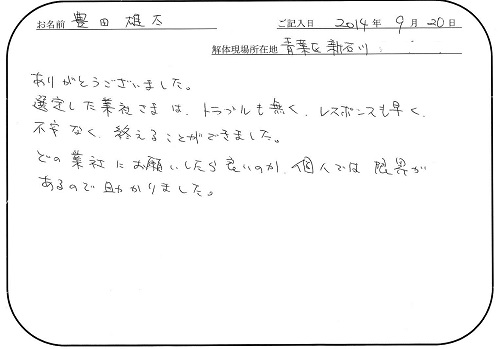 お名前 豊田 雄太 ご記入日 2014年 9月 20日
解体現場所在地 青葉区新石川
ありがとうございました。
選定した業社さまは、トラブルも無く、レスポンスも早く、
不安なく、終えることができました。
どの業社にお願いしたら良いのか、個人では限界が
あるので助かりました。